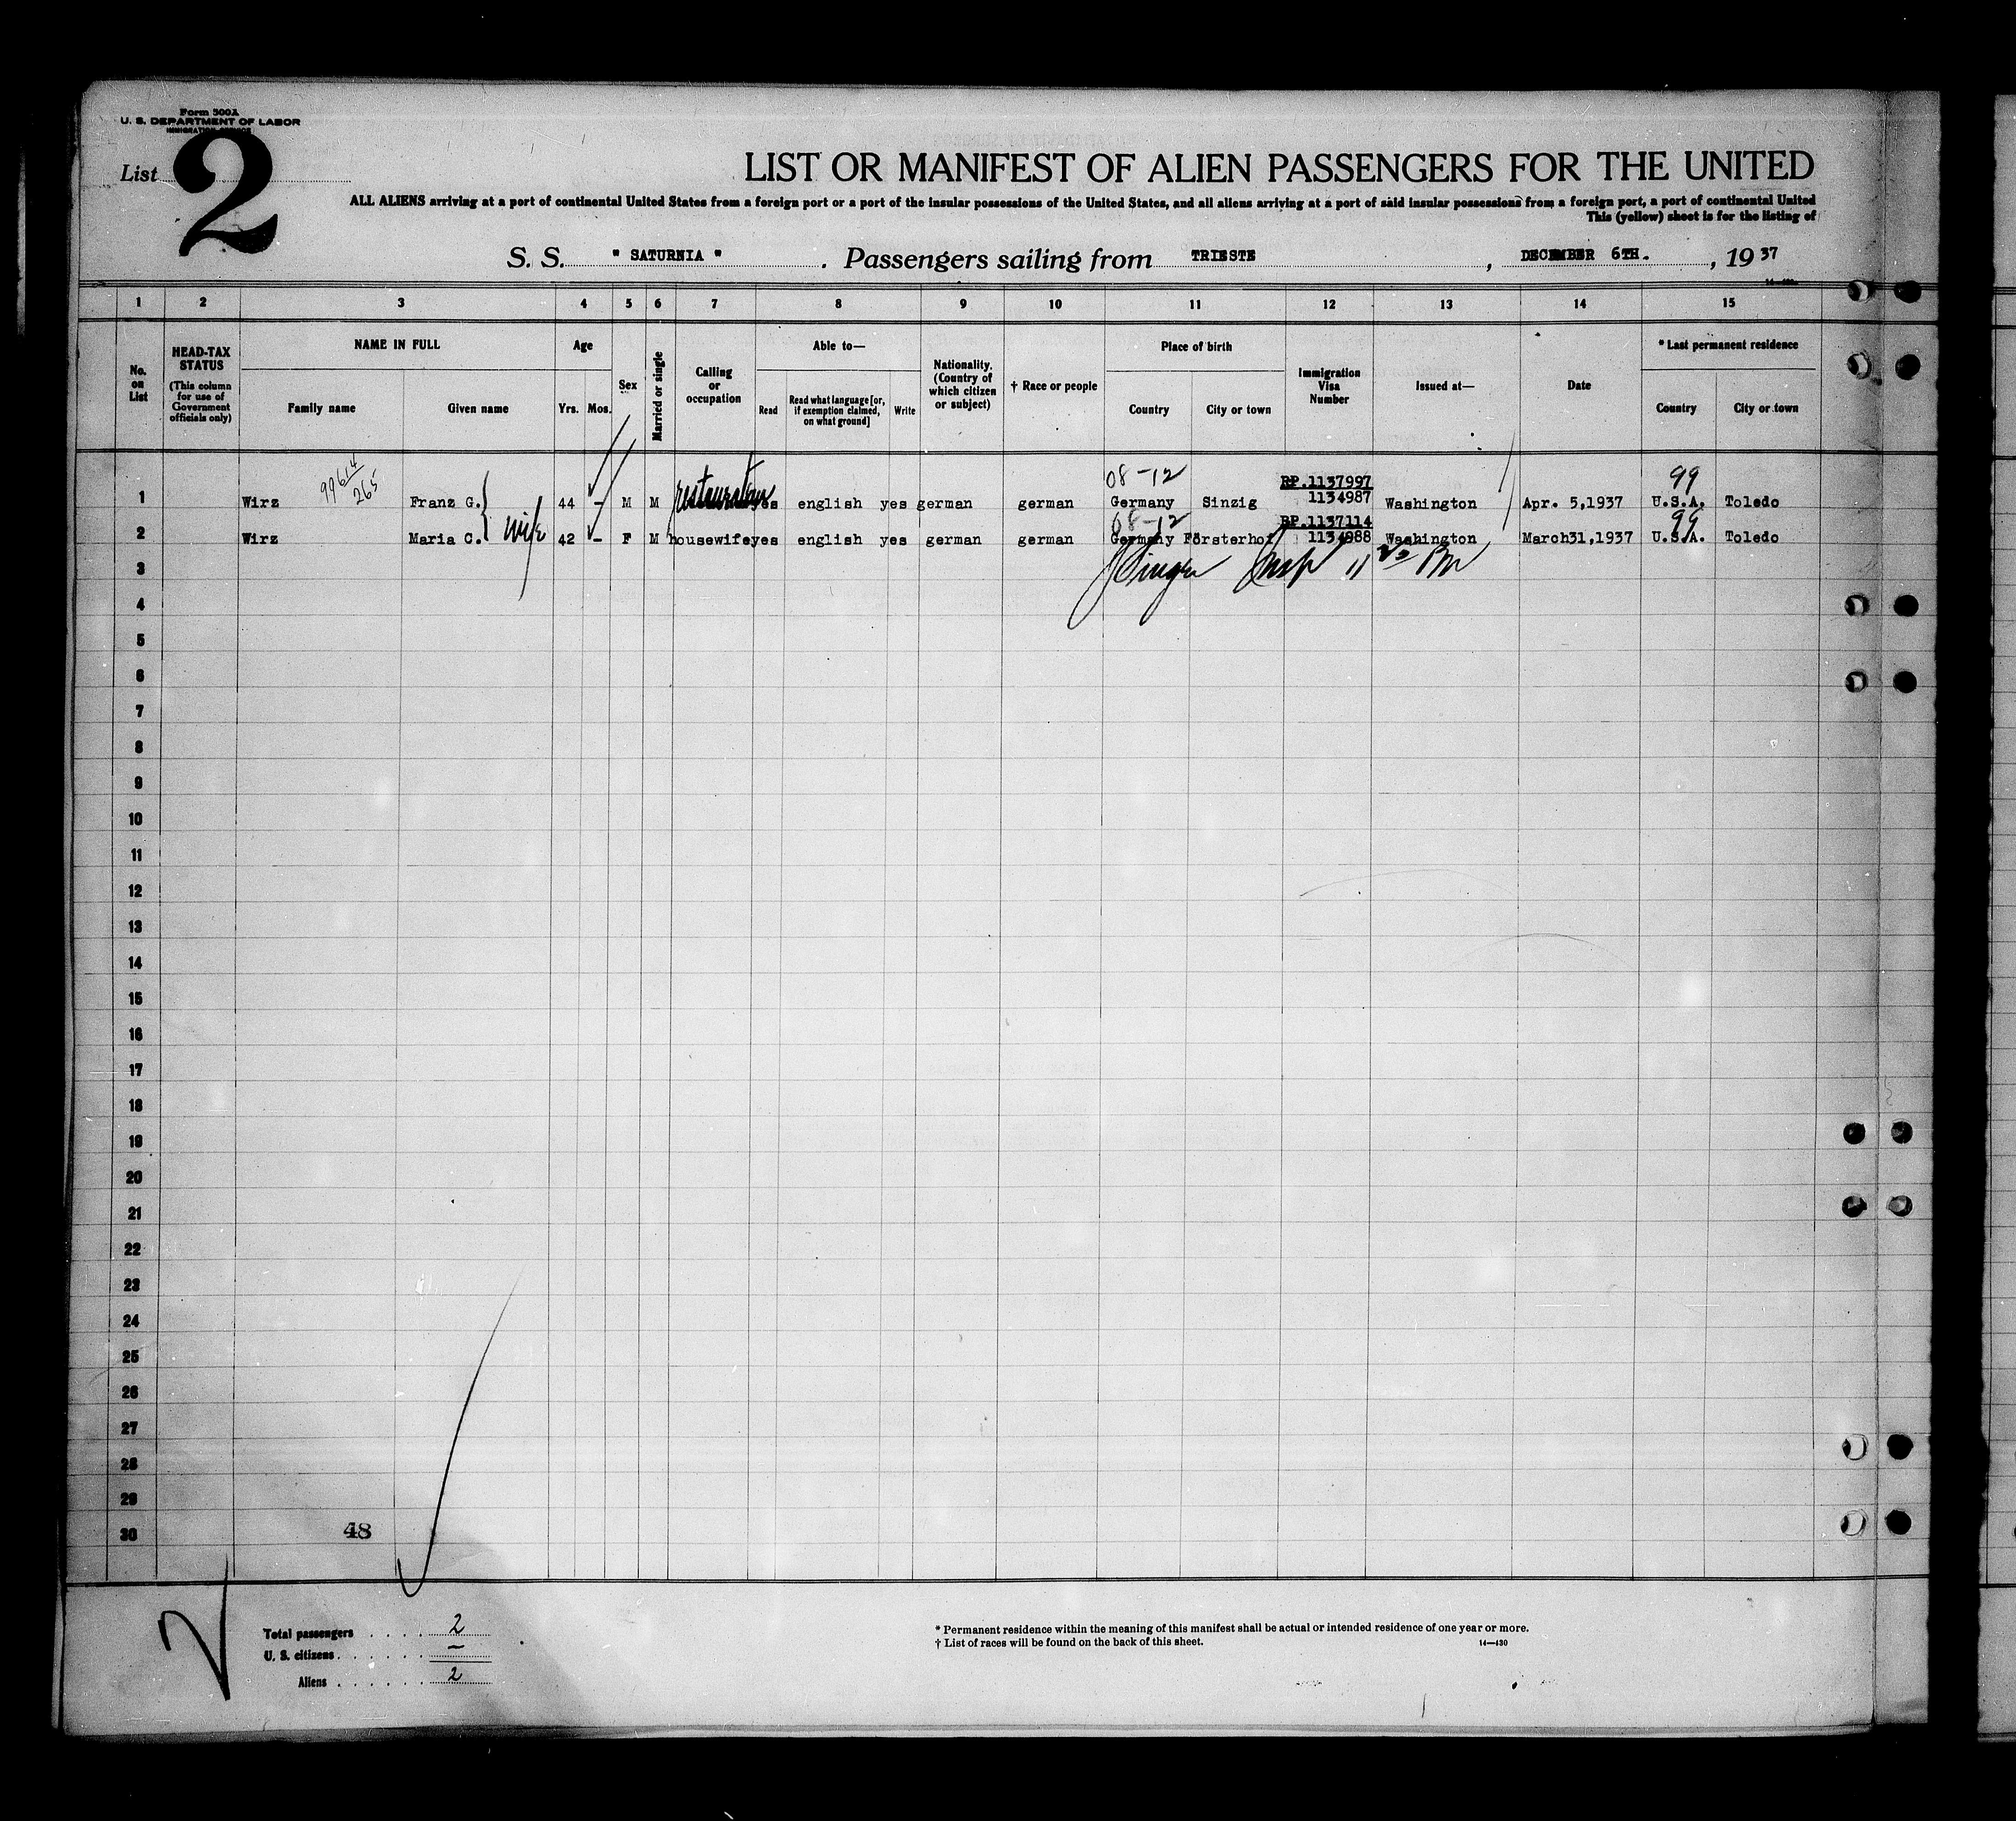 Form 500A
U. S. DEPARTMENT OF LABOR
IMMIGRATION SERVICE
List 2
LIST OR MANIFEST OF ALIEN PASSENGERS FOR THE UNITED
ALL ALIENS arriving at a port of continental United States from a foreign port or a port of the insular possessions of the United States, and all aliens arriving at a port of said insular possessions from a foreign port, a port of continental United
This (yellow) sheet is for the listing of
S. S. " SATURNIA " . Passengers sailing from TRIESTE , DECEMBER 6TH. , 19 37
1 2 3 4 5 6 7 8 9 10 11 12 13 14 15
No. on List
HEAD-TAX STATUS (This column for use of Government officials only)
NAME IN FULL
Family name Given name
Age
Yrs. Mos.
Sex
Married or single
Calling or occupation
Able to—
Read Read what language [or, if exemption claimed, on what ground] Write
Nationality. (Country of which citizen or subject)
† Race or people
Place of birth
Country City or town
Immigration Visa Number
Issued at—
Date
* Last permanent residence
Country City or town
99614 265
08-12 RP.1137997 99
1 Wirz Franz G. 44 - M M restaurateur yes english yes german german Germany Sinzig 1134987 Washington Apr. 5,1937 U.S.A. Toledo
wife
08-12 RP.1137114 99
2 Wirz Maria C. 42 - F M housewife yes english yes german german Germany Försterhof 1134988 Washington March31,1937 U.S.A. Toledo
3 Insp
4
5
6
7
8
9
10
11
12
13
14
15
16
17
18
19
20
21
22
23
24
25
26
27
28
29
30 48
Total passengers . . . . 2
U. S. citizens . . . . . . —
Aliens . . . . . . 2
* Permanent residence within the meaning of this manifest shall be actual or intended residence of one year or more.
† List of races will be found on the back of this sheet. 14—430